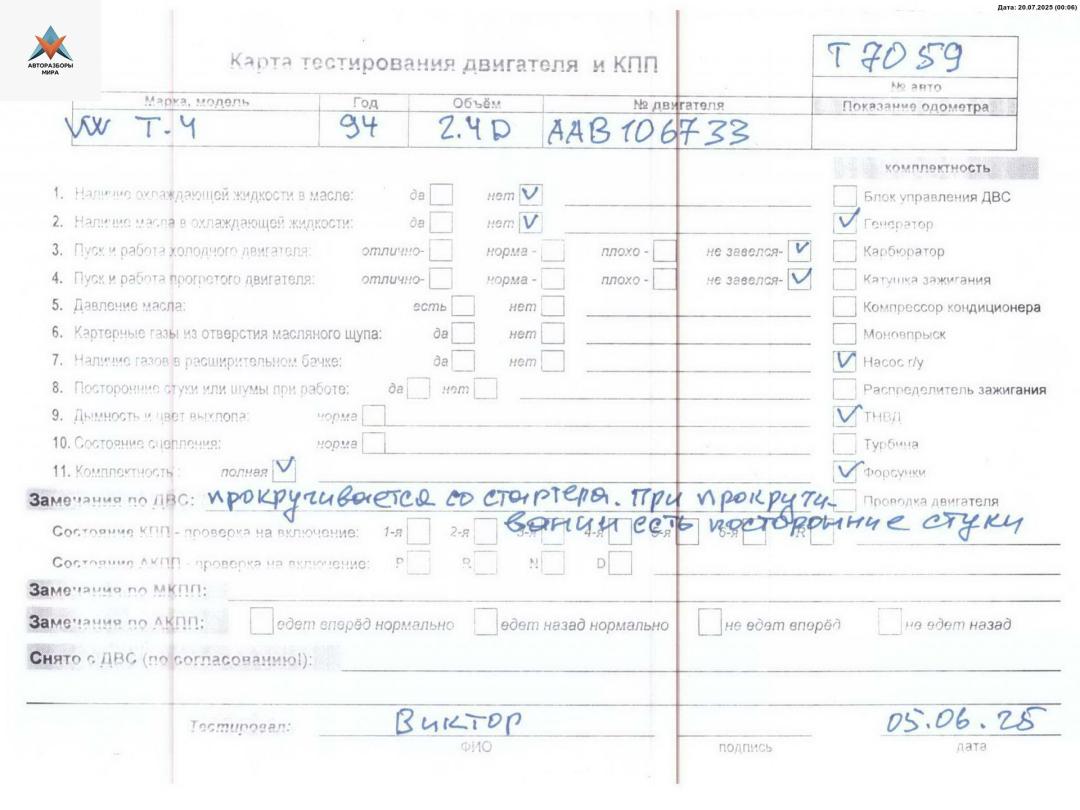 Дата: 20.07.2025 (00:06)
АВТОРАЗБОРЫ
МИРА
Карта тестирования двигателя и КПП
T 7059
№ авто
Марка, модель Год Объём № двигателя Показание одометра
VW T-4 94 2.4D AAB106733
комплектность
1. Наличие охлаждающей жидкости в масле: да нет
Блок управления ДВС
2. Наличие масла в охлаждающей жидкости: да нет
Генератор
3. Пуск и работа холодного двигателя: отлично- норма - плохо - не завелся-
Карбюратор
4. Пуск и работа прогретого двигателя: отлично- норма - плохо - не завелся-
Катушка зажигания
5. Давление масла: есть нет
Компрессор кондиционера
6. Картерные газы из отверстия масляного щупа: да нет
Моновпрыск
7. Наличие газов в расширительном бачке: да нет
Насос г/у
8. Посторонние стуки или шумы при работе: да нет
Распределитель зажигания
9. Дымность и цвет выхлопа: норма
ТНВД
10. Состояние сцепления: норма
Турбина
11. Комплектность: полная
Форсунки
Замечания по ДВС: прокручивается со стартера. При прокручи-
Проводка двигателя
вании есть посторонние стуки
Состояние КПП - проверка на включение: 1-я 2-я 3-я 4-я 5-я 6-я R
Состояние АКПП - проверка на включение: P R N D
Замечания по МКПП:
Замечания по АКПП: едет вперёд нормально едет назад нормально не едет вперёд не едет назад
Снято с ДВС (по согласованию!):
Тестировал: Виктор 05.06.25
ФИО подпись дата